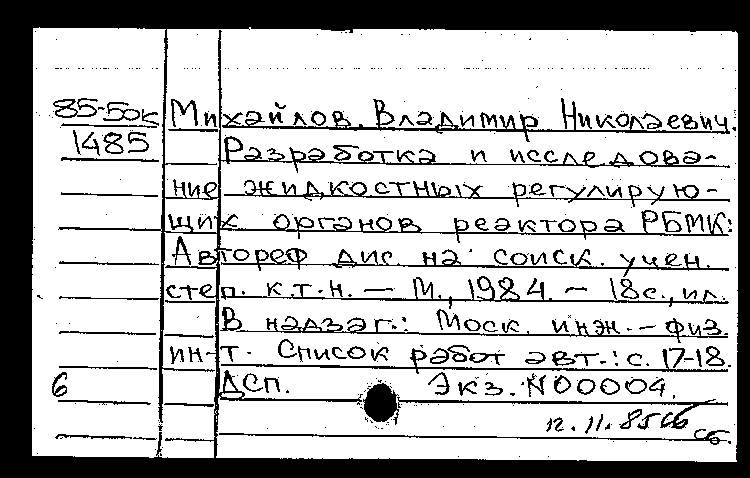 85-5ок Михайлов, Владимир Николаевич.
1485 Разработка и исследова-
ние жидкостных регулирую-
щих органов реактора РБМК:
Автореф дис. на соиск. учен.
степ. к.т.н. — М., 1984. — 18с., ил.
В надзаг.: Моск. инж. - физ.
ин-т. Список работ авт.: с. 17-18.
6 ДСП. Экз. N00004.
12.11.85
сб.